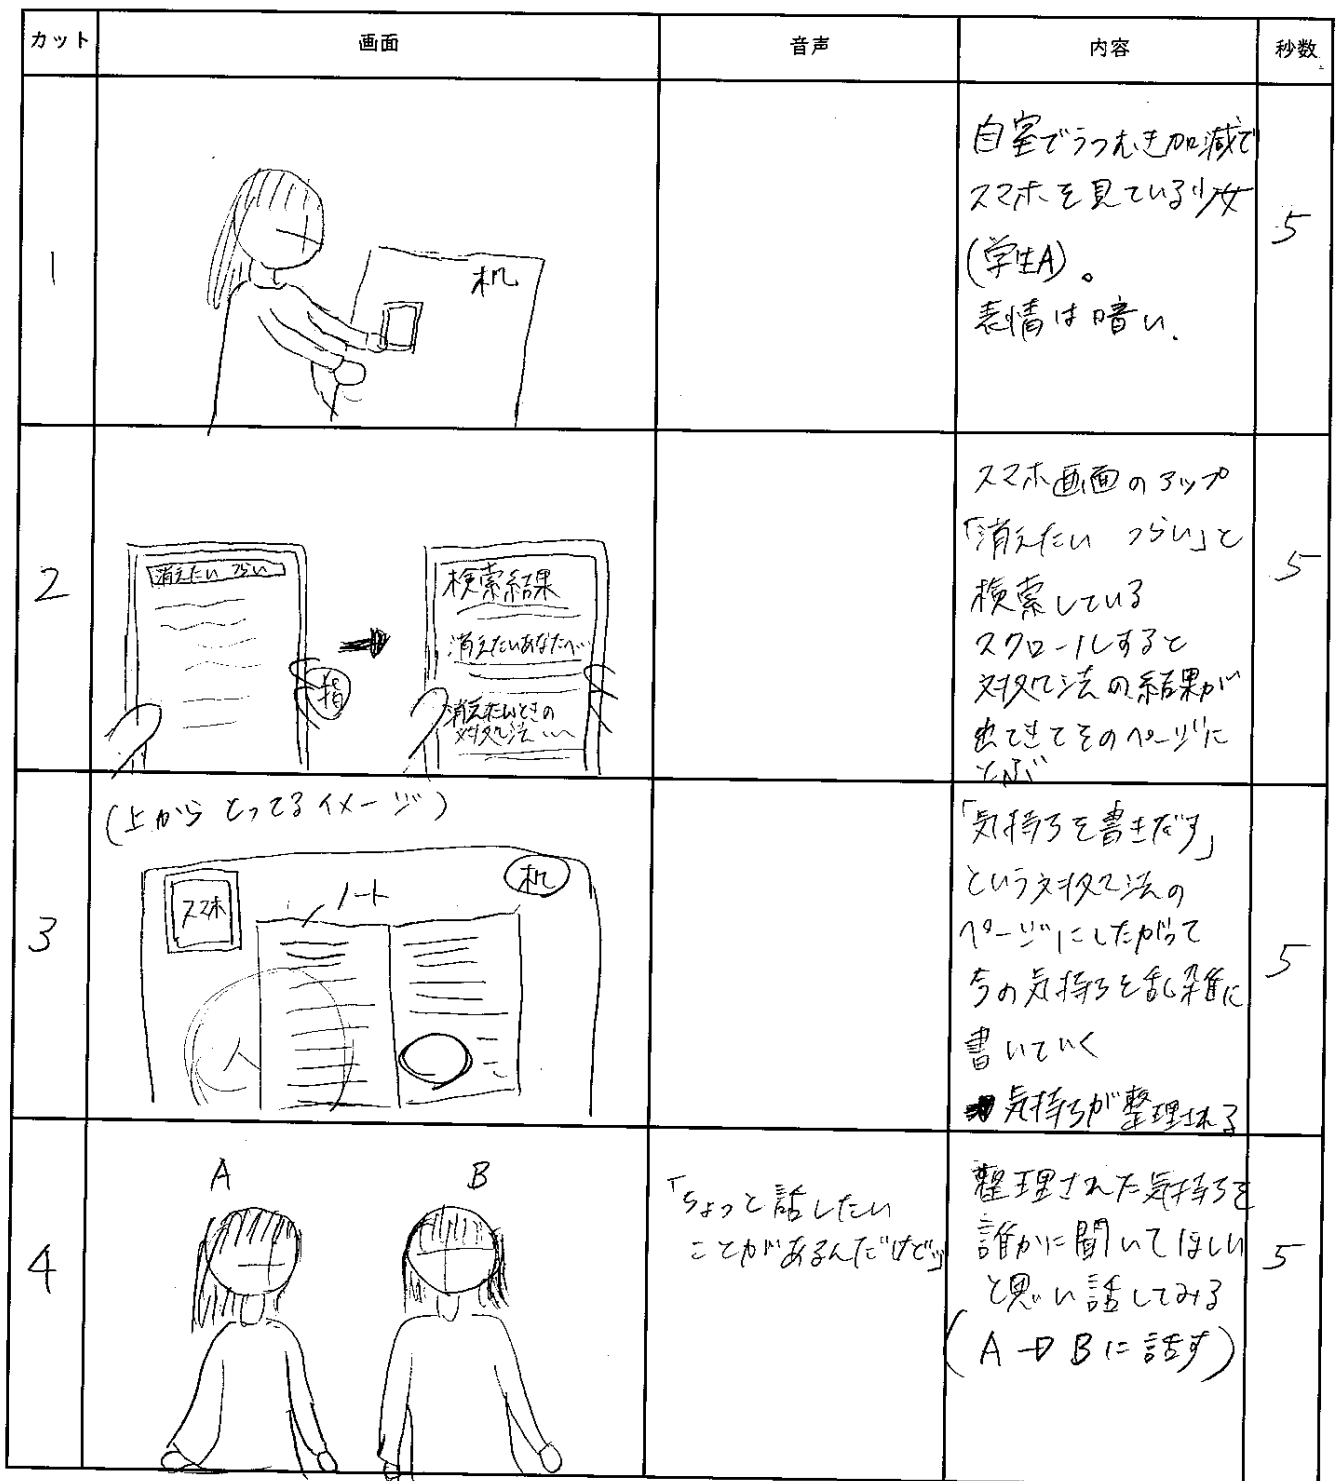 カット 画面 音声 内容 秒数
1
机
自室でうつむき加減で
スマホを見ている少女
(学生A)。
表情は暗い。
5
2
消えたい つらい
指
検索結果
消えたいあなたへ…
消えたいときの
対処法…
スマホ画面のアップ
「消えたい つらい」と
検索している
スクロールすると
対処法の結果が
出てきてそのページに
とぶ
5
3
(上からとってるイメージ)
スマホ
ノート
机
人
「気持ちを書きだす」
という対処法の
ページにしたがって
今の気持ちを乱雑に
書いていく
気持ちが整理される
5
4
A
B
「ちょっと話したい
ことがあるんだけど」
整理された気持ちを
誰かに聞いてほしい
と思い話してみる
(A→Bに話す)
5